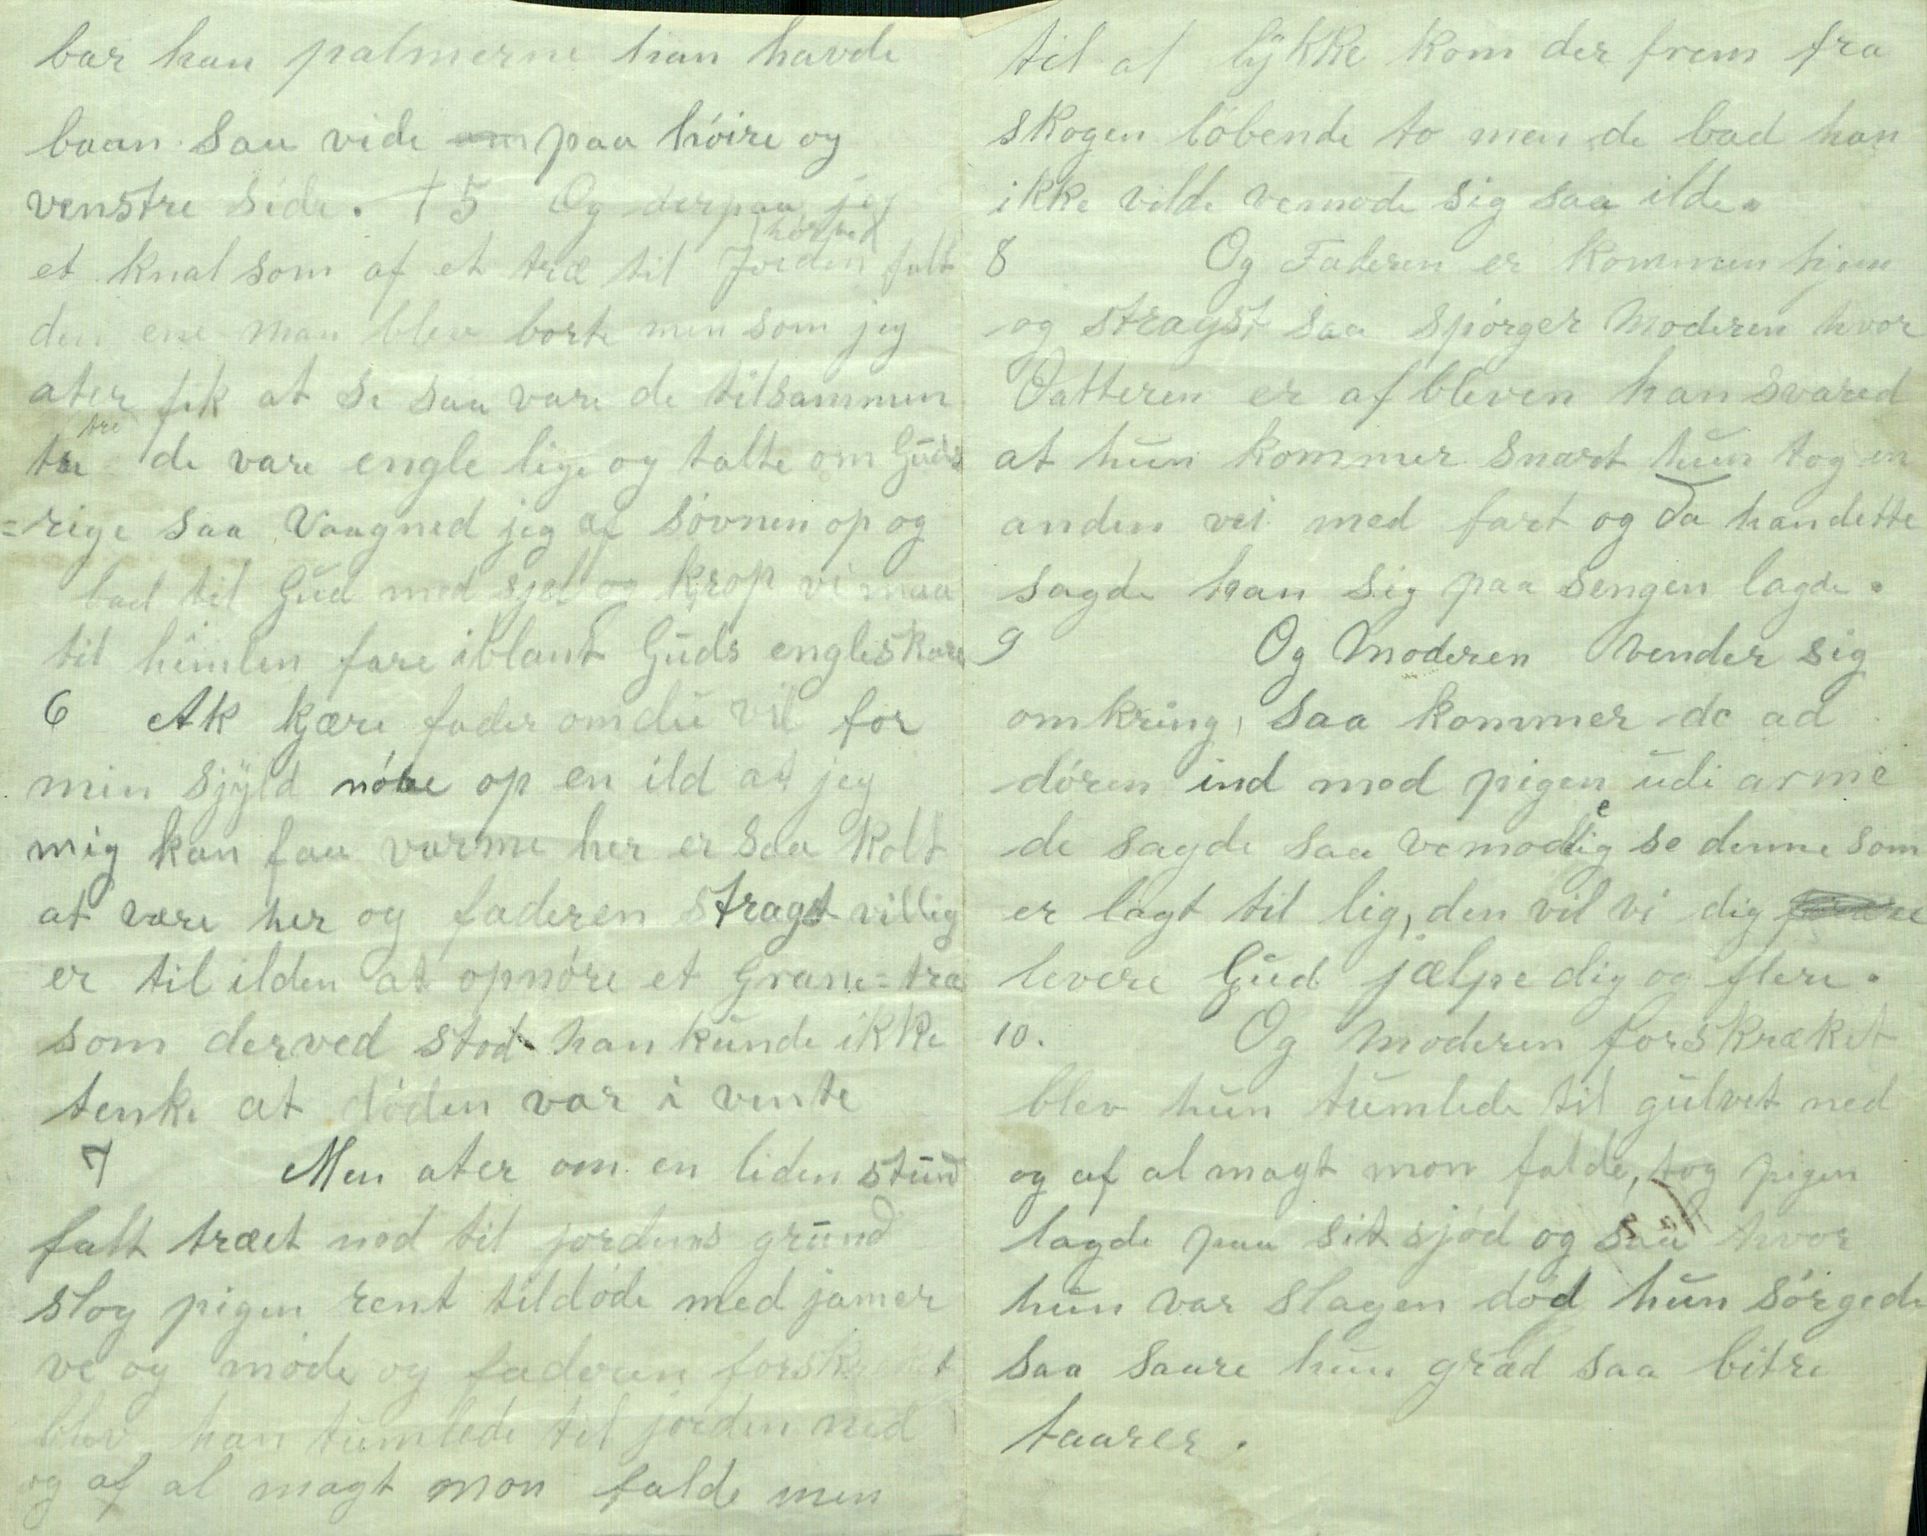 bar han palmerne han havde
baan saa vide om paa høire og
venstre side. † 5 Og derpaa jeg
hørved
et knal som af et træ til Jorden falt
den ene man blev borte men som jeg
ater fik at se saa vare de tilsammen
tre
tre de vare engle lige og talte om Guds
=rige saa Vaagned jeg af søvnen op og
bad til Gud med sjel og krop vi maa
til himlen fare iblant Guds engleskare
6 Ak kjære fader om du vil for
min sjyld nøre op en ild at jeg
mig kan faa varme her er saa kolt
at være her og faderen stragst villig
er til ilden at opnøre et Grane=træ
som derved stod han kunde ikke
tenke at døden var i vente
7 Men ater om en liden stund
falt træet ned til jordens grund
slog pigen rent tildøde med jamer
ve og møde og faderen forskrækt
blev han tumlede til jorden ned
og af al magt mon falde men
til al lykke kom der frem fra
skogen løbende to men de bad han
ikke vilde vemode sig saa ilde.
8 Og Faderen er kommen hjem
og stragst saa spørger Moderen hvor
Datteren er af bleven han svared
at hun kommer snart hun tog en
anden vei med fart og da han dette
sagde han sig paa sengen lagde.
9 Og Moderen vender sig
omkring, saa kommer de ad
døren ind med pigen udi arme
de sagde saa vemodelig se denne som
er lagt til lig, den vil vi dig
levere Gud jælpe dig og flere.
10. Og Moderen forskrækket
blev hun tumlede til gulvet ned
og af al magt mon falde, tog pigen
lagde paa sit sjød og saa hvor
hun var slagen død hun sørgede
saa saare hun græd saa bitre
taarer.